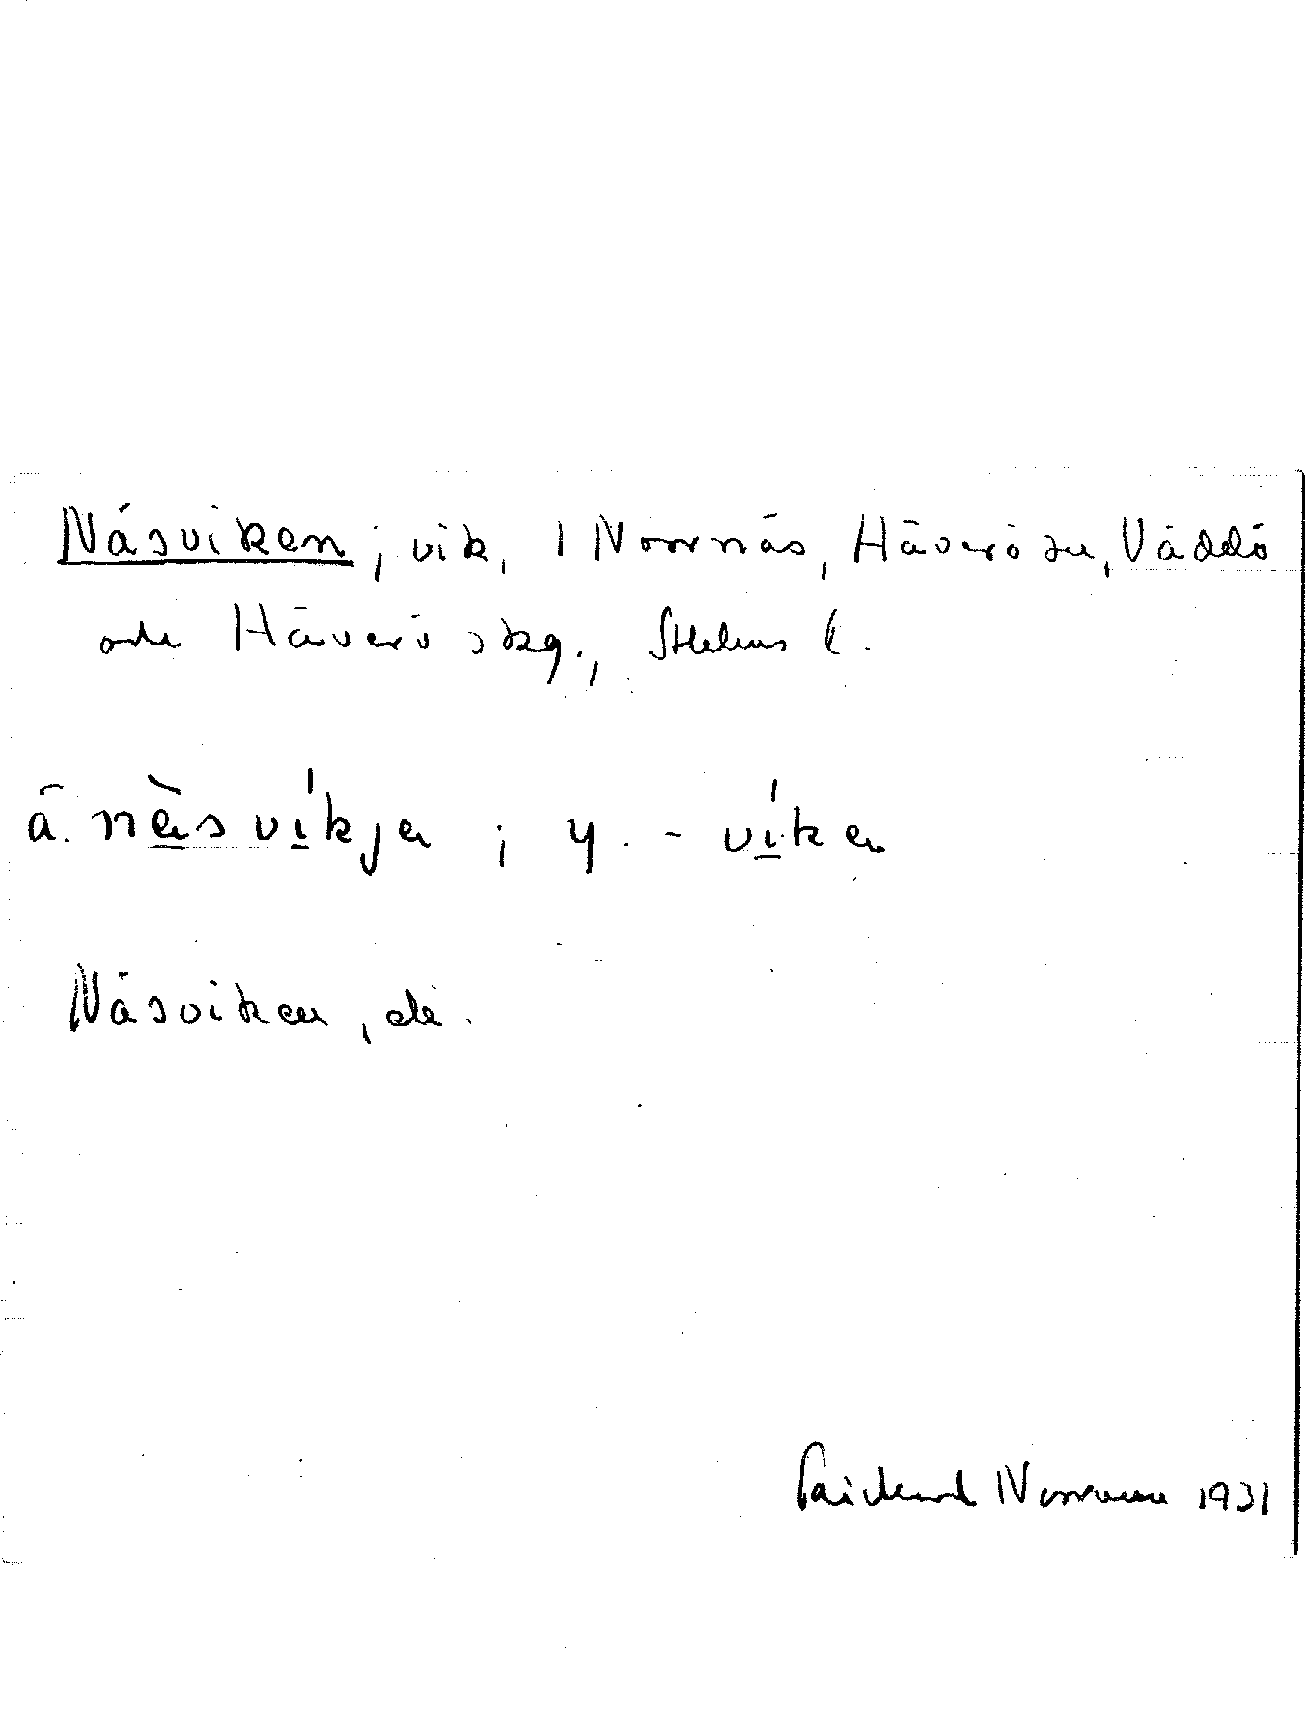 Näsviken, vik, i Norrnäs, Häverö sn, Väddö
och Häverö skg., Sthlms l.
ä. nä̀svíkja ; y. -víka
Näsviken, do.
Rickard Norman 1931